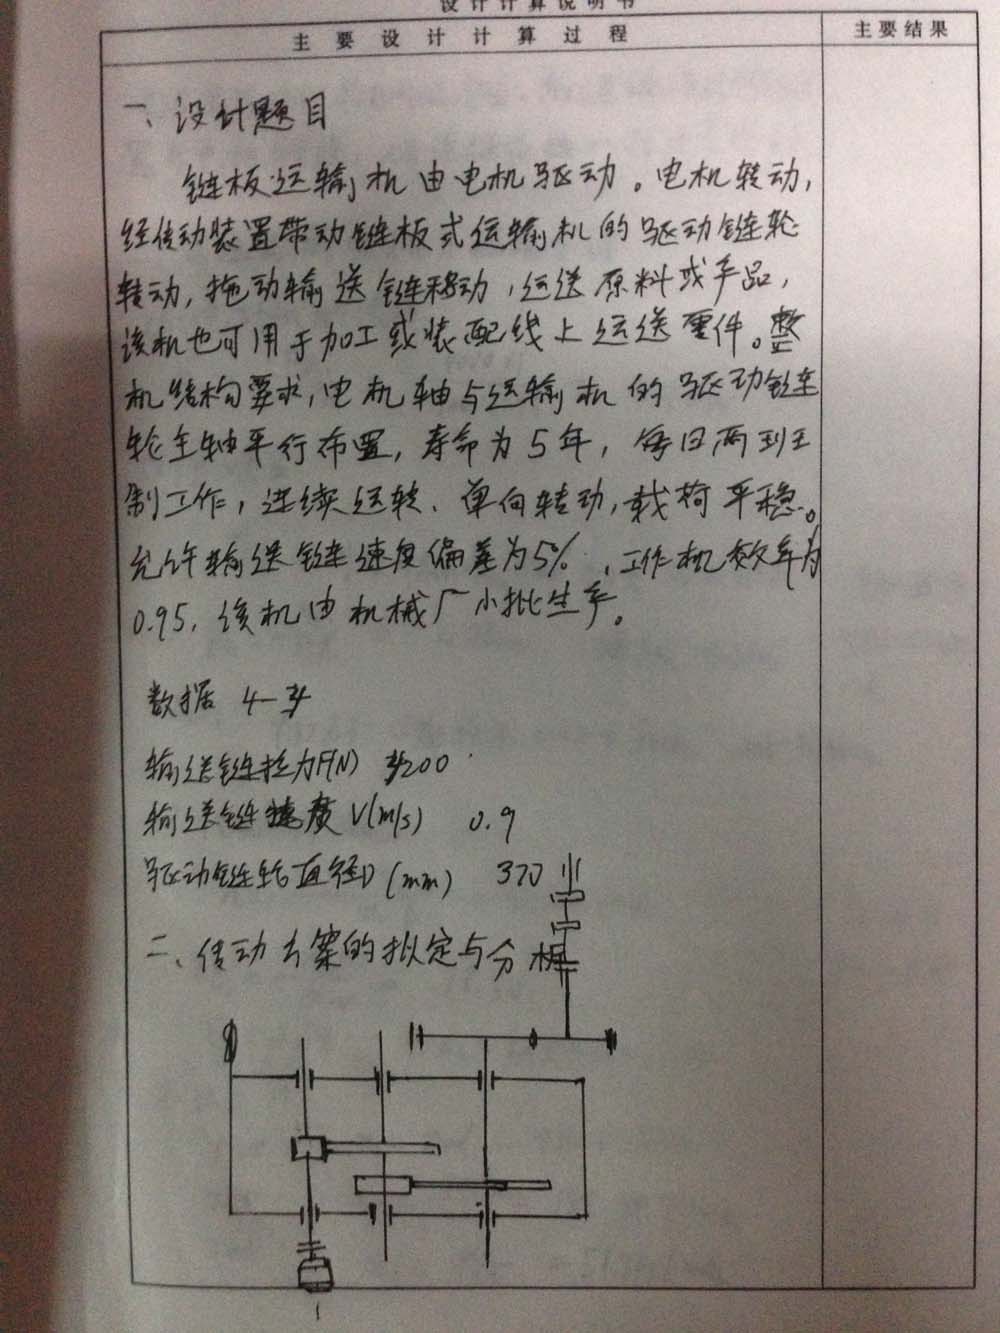 设计计算说明书
主要设计计算过程
主要结果
一、设计题目
链板运输机由电机驱动。电机转动,
经传动装置带动链板式运输机的驱动链轮
转动,拖动输送链移动,运送原料或产品,
该机也可用于加工或装配线上运送零件。整
机结构要求,电机轴与运输机的驱动链
轮主轴平行布置,寿命为5年,每日两班
制工作,连续运转、单向转动,载荷平稳。
允许输送链速度偏差为5%,工作机效率为
0.95,该机由机械厂小批生产。
数据 4-
输送链拉力F(N) 200
输送链速度V(m/s) 0.9
驱动链轮直径D(mm) 370
二、传动方案的拟定与分析